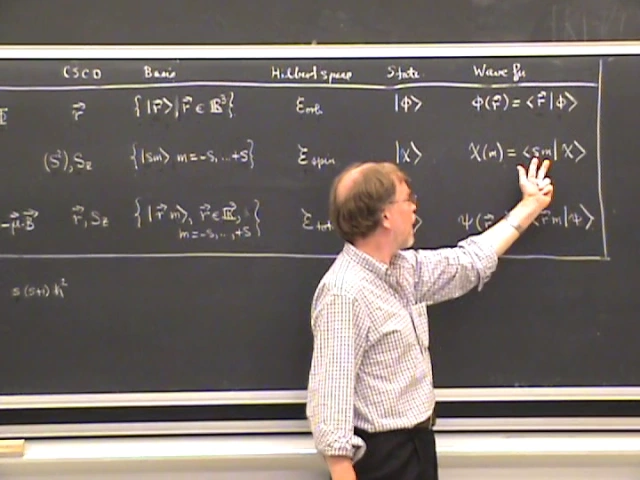 CSCO Basis Hilbert space State Wave fn
r⃗ { |r⃗⟩ | r⃗ ∈ ℝ³ } ℰorb. |Φ⟩ Φ(r⃗) = ⟨r⃗|Φ⟩
(S²), Sz { |sm⟩ m = -s, .. +s } ℰspin |χ⟩ χ(m) = ⟨sm|χ⟩
-μ⃗·B⃗ r⃗, Sz { |r⃗ m⟩, r⃗ ∈ ℝ³, ℰtot ⟩ Ψ(r⃗ r⃗ m|Ψ⟩
m = -s, ..., +s }
s(s+1)ħ²